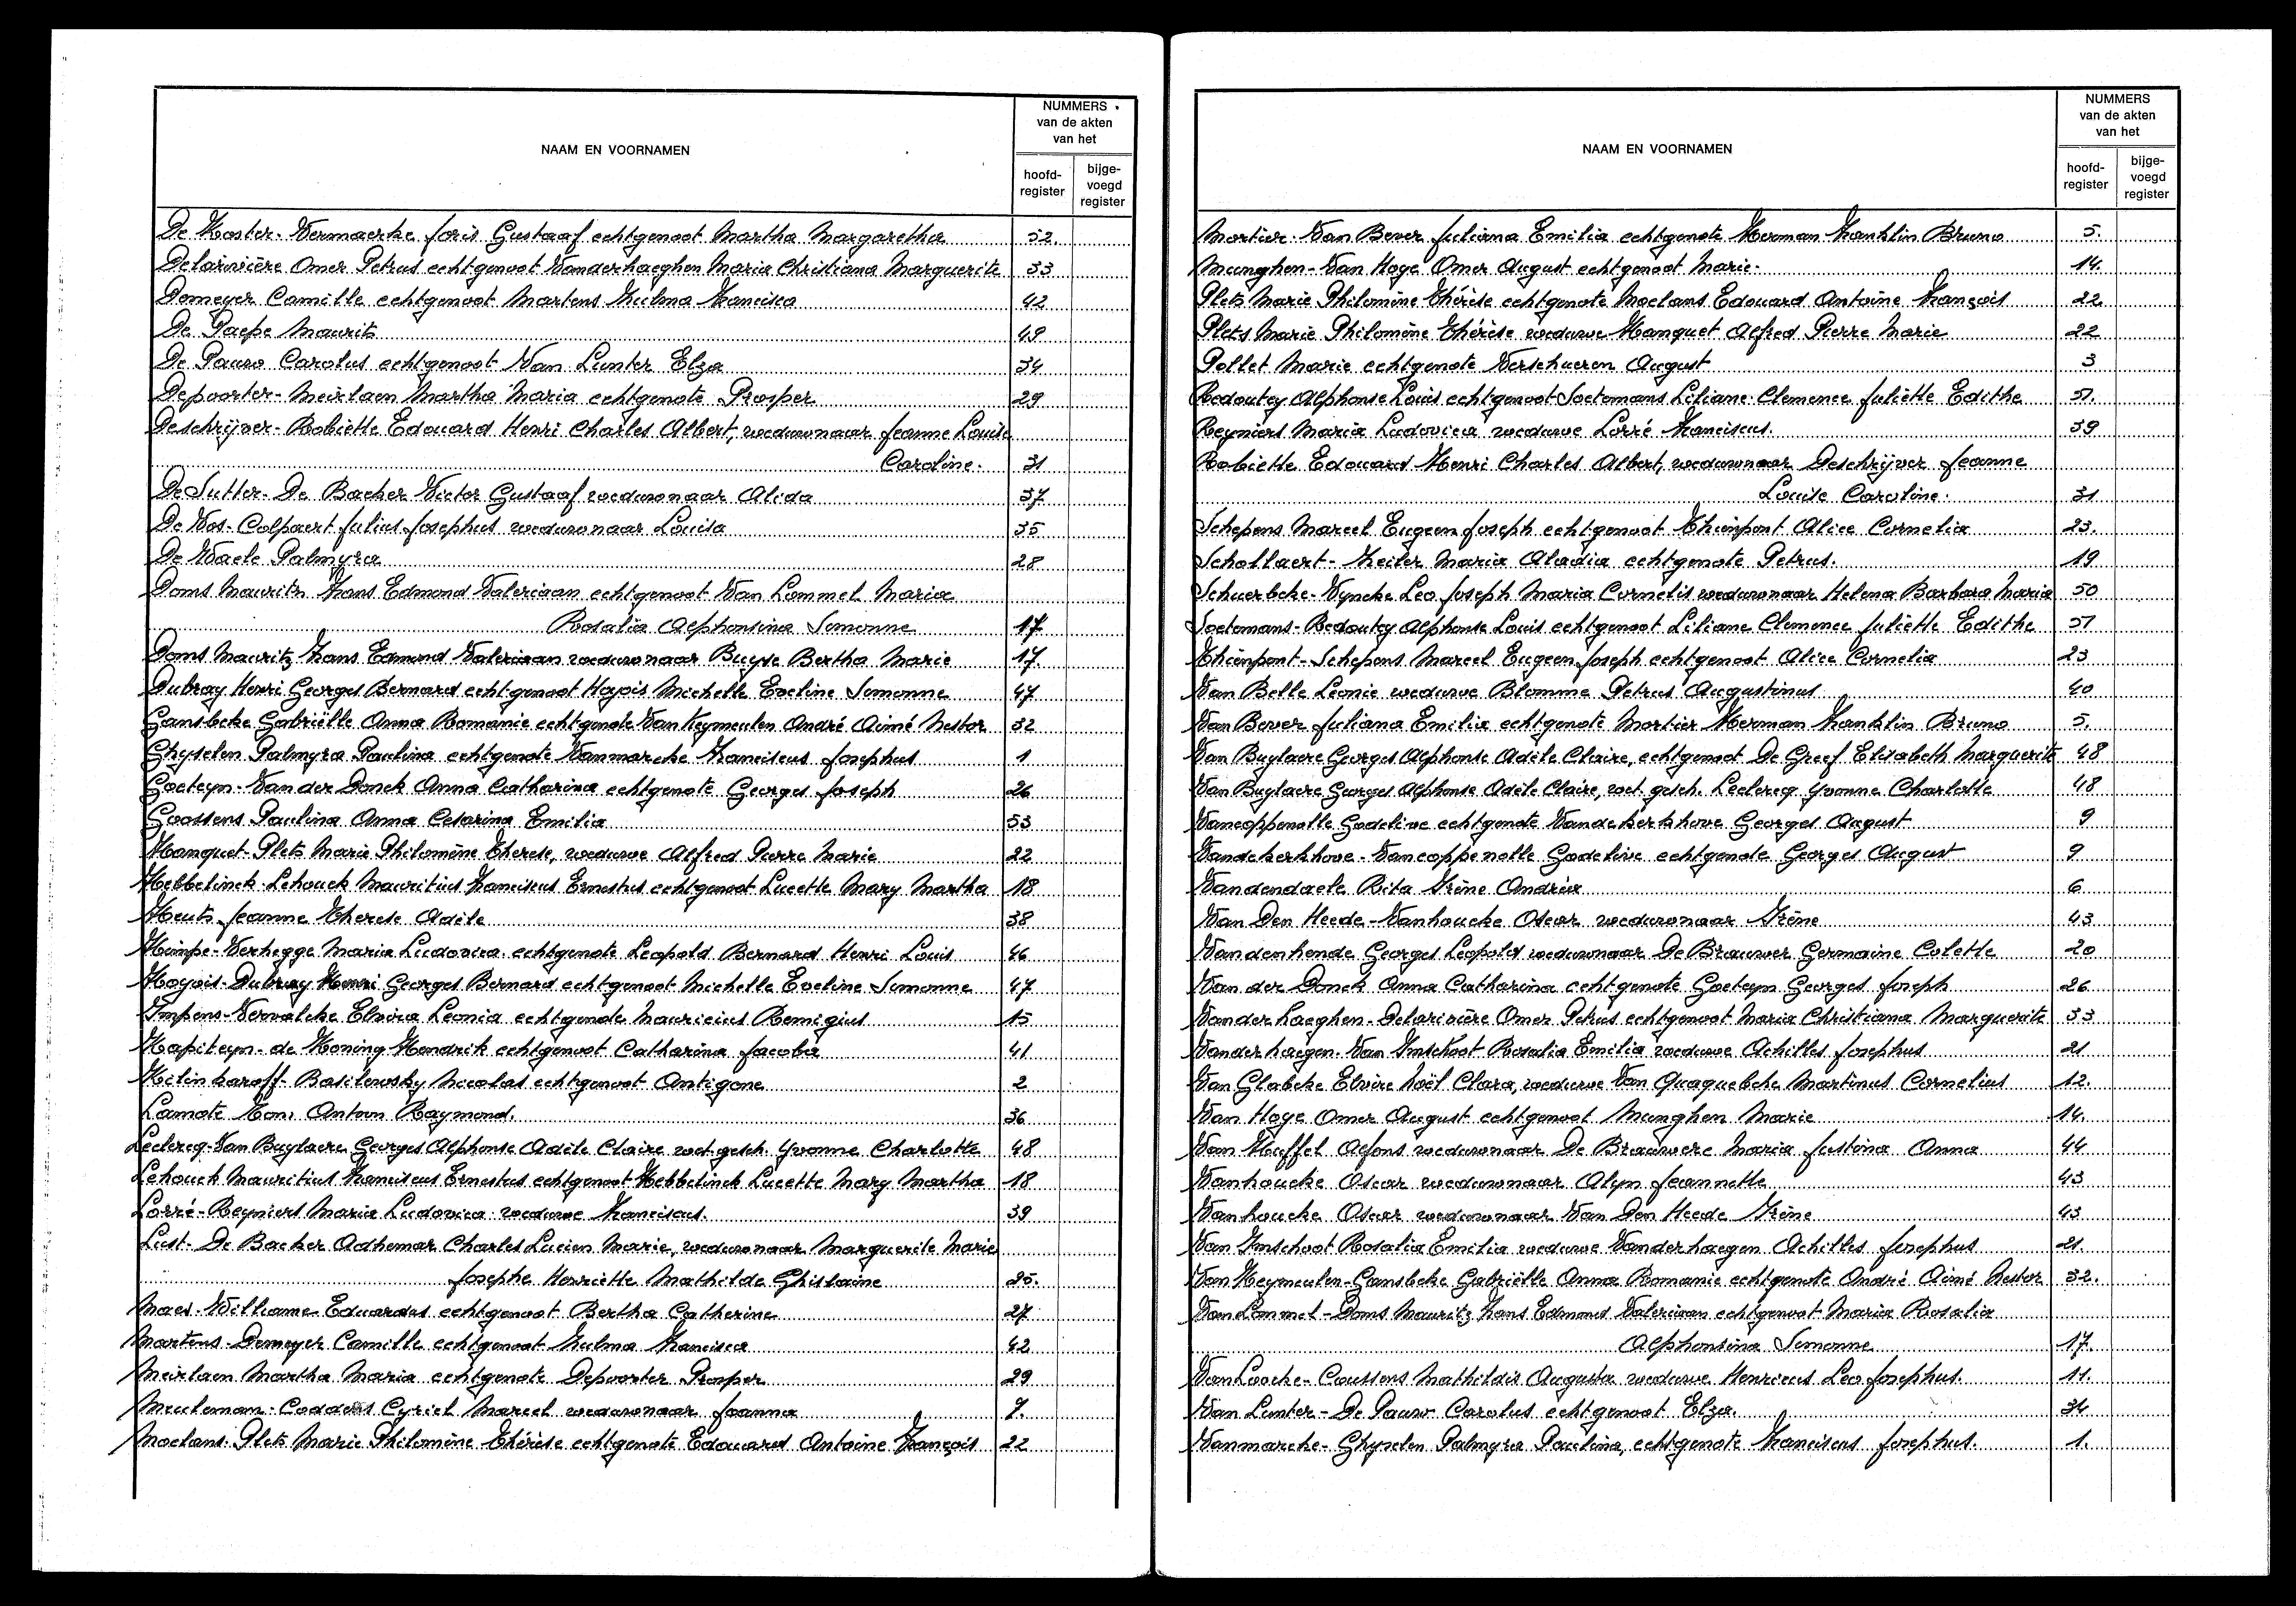 NAAM EN VOORNAMEN
NUMMERS
van de akten
van het
hoofd-
register
bijge-
voegd
register
De Koster-Vermaerke Joris Gustaaf echtgenoot Martha Margaretha 52.
Delarivière Omer Petrus echtgenoot Vanderhaeghen Maria Christiana Marguerite 33
Demeyer Camille echtgenoot Martens Zulma Francisca 42
De Paepe Maurits 49
De Pauw Carolus echtgenoot Van Lunter Elza 34
Depoorter-Meirlaen Martha Maria echtgenote Prosper 29
Deschrijver-Robiette Edouard Henri Charles Albert, weduwnaar Jeanne Louise
Caroline. 31
De Sutter-De Backer Victor Gustaaf weduwnaar Alida 37
De Vos-Colpaert Julius Josephus weduwnaar Louisa 35
De Waele Palmyra 28
Doms Maurits Frans Edmond Valeriaan echtgenoot Van Lommel Maria
Rosalia Alphonsina Simonne 17
Doms Maurits Frans Edmond Valeriaan weduwnaar Buyse Bertha Marie 17.
Dubray Henri Georges Bernard echtgenoot Hoyois Michelle Eveline Simonne 47
Gansbeke Gabriëlle Anna Romanie echtgenote Van Keymeulen André Aimé Nestor 32
Ghyselen Palmyra Paulina echtgenote Vanmarcke Franciscus Josephus 1
Goeteyn-Van der Donck Anna Catharina echtgenote Georges Joseph 26
Goossens Paulina Anna Cesarina Emilia 53
Hanquet-Plets Marie Philomène Therese, weduwe Alfred Pierre Marie 22
Hebbelinck-Lehouck Mauritius Franciscus Ernestus echtgenoot Lucette Mary Martha 18
Heuts Jeanne Therese Adèle 38
Himpe-Verhegge Maria Ludovica echtgenote Leopold Bernard Henri Louis 46
Hoyois-Dubray Henri Georges Bernard echtgenoot Michelle Eveline Simonne 47
Impens-Vervalcke Elvira Leonia echtgenote Mauricius Remigius 15
Kapiteyn-de Koning Hendrik echtgenoot Catharina Jacoba 41
Kilinkaroff-Basilewsky Nicolas echtgenoot Antigone 2
Lamote Antoon Raymond. 36
Leclercq-Van Buylaere Georges Alphonse Adèle Claire wet. gesch. Yvonne Charlotte 48
Lehouck Mauritius Franciscus Ernestus echtgenoot Hebbelinck Lucette Mary Martha 18
Lorré-Reyniers Maria Ludovica weduwe Franciscus. 39
Lust-De Backer Adhemar Charles Lucien Marie, weduwnaar Marguerite Marie
Josephe Henriette Mathilde Ghislaine 25.
Maes-Williame Eduardus echtgenoot Bertha Catherine 27
Martens-Demeyer Camille echtgenoot Zulma Francisca 42
Meirlaen Martha Maria echtgenote Depoorter Prosper 29
Meuleman-Coddens Cyriel Marcel weduwnaar Joanna 7.
Moelans-Plets Marie Philomène Thérèse echtgenote Edouard Antoine François 22
NAAM EN VOORNAMEN
NUMMERS
van de akten
van het
hoofd-
register
bijge-
voegd
register
Mortier-Van Bever Juliana Emilia echtgenote Herman Franklin Bruno 5.
Munghen-Van Hoye Omer August echtgenoot Marie. 14.
Plets Marie Philomène Thérèse echtgenote Moelans Edouard Antoine François 22
Plets Marie Philomène Thérèse weduwe Hanquet Alfred Pierre Marie 22
Pollet Marie echtgenote Verschueren August 3
Redoutey Alphonse Louis echtgenoot Soetemans Liliane Clemence Juliette Edithe 51.
Reyniers Maria Ludovica weduwe Lorré Franciscus. 39
Robiette Edouard Henri Charles Albert, weduwnaar Deschrijver Jeanne
Louise Caroline. 31
Schepens Marcel Eugeen Joseph echtgenoot Thienpont Alice Cornelia 23.
Schollaert-Keiler Maria Aladia echtgenote Petrus. 19
Schuerbeke-Vyncke Leo Joseph Maria Cornelis weduwnaar Helena Barbara Maria 50
Soetemans-Redoutey Alphonse Louis echtgenoot Liliane Clemence Juliette Edithe 51
Thienpont-Schepens Marcel Eugeen Joseph echtgenoot Alice Cornelia 23
Van Belle Leonie weduwe Blomme Petrus Augustinus 40
Van Bever Juliana Emilia echtgenote Mortier Herman Franklin Bruno 5.
Van Buylaere Georges Alphonse Adèle Claire, echtgenoot De Greef Elisabeth Marguerite 48
Van Buylaere Georges Alphonse Adèle Claire, wet. gesch. Leclercq Yvonne Charlotte 48
Vancoppenolle Godelive echtgenote Vandekerkhove Georges August 9
Vandekerkhove-Vancoppenolle Godelive echtgenote Georges August 9
Vandendaele Rita Irène Andréa 6
Van Den Heede-Vanhoucke Oscar weduwnaar Irène 43
Vandenhende Georges Leopold weduwnaar De Brauwer Germaine Colette 20
Van der Donck Anna Catharina echtgenote Goeteyn Georges Joseph 26
Vanderhaeghen-Delarivière Omer Petrus echtgenoot Maria Christiana Marguerite 33
Vanderhaegen-Van Imschoot Rosalia Emilia weduwe Achilles Josephus 21
Van Glabeke Elvire Noël Clara, weduwe Van Quaquebeke Martinus Cornelius 12.
Van Hoye Omer August echtgenoot Munghen Marie 14.
Van Huffel Alfons weduwnaar De Brauwere Maria Justina Anna 44
Vanhoucke Oscar weduwnaar Alyn Jeannette 43
Vanhoucke Oscar weduwnaar Van Den Heede Irène 43
Van Imschoot Rosalia Emilia weduwe Vanderhaegen Achilles Josephus 21.
Van Keymeulen-Gansbeke Gabriëlle Anna Romanie echtgenote André Aimé Nestor 32.
Van Lommel-Doms Maurits Frans Edmond Valeriaan echtgenoot Maria Rosalia
Alphonsina Simonne 17.
Van Looche-Caussens Mathildis Augusta weduwe Henricus Leo Josephus. 11.
Van Lunter-De Pauw Carolus echtgenoot Elza. 34
Vanmarcke-Ghyselen Palmyra Paulina, echtgenote Franciscus Josephus. 1.